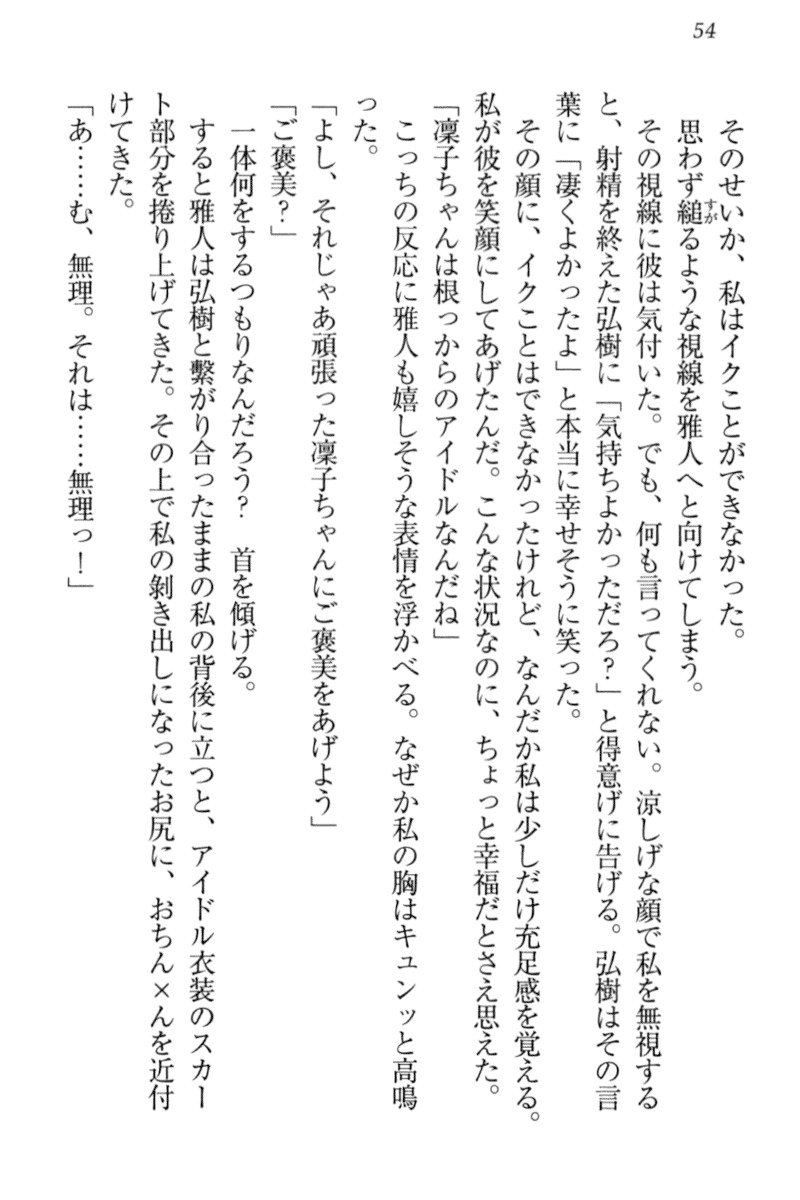 54
そのせいか、私はイクことができなかった。
思わず縋るような視線を雅人へと向けてしまう。
その視線に彼は気付いた。でも、何も言ってくれない。涼しげな顔で私を無視する
と、射精を終えた弘樹に「気持ちよかっただろ？」と得意げに告げる。弘樹はその言
葉に「凄くよかったよ」と本当に幸せそうに笑った。
その顔に、イクことはできなかったけれど、なんだか私は少しだけ充足感を覚える。
私が彼を笑顔にしてあげたんだ。こんな状況なのに、ちょっと幸福だとさえ思えた。
「凜子ちゃんは根っからのアイドルなんだね」
こっちの反応に雅人も嬉しそうな表情を浮かべる。なぜか私の胸はキュンッと高鳴
った。
「よし、それじゃあ頑張った凜子ちゃんにご褒美をあげよう」
「ご褒美？」
一体何をするつもりなんだろう？　首を傾げる。
すると雅人は弘樹と繋がり合ったままの私の背後に立つと、アイドル衣装のスカー
ト部分を捲り上げてきた。その上で私の剝き出しになったお尻に、おちん×んを近付
けてきた。
「あ……む、無理。それは……無理っ！」